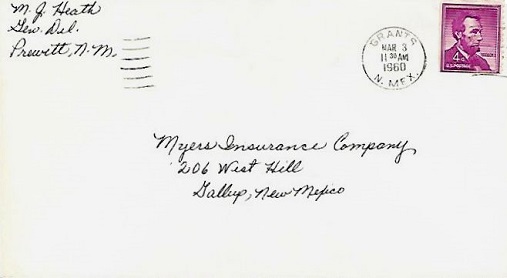 M. J. Heath
Gen. Del.
Prewitt, N.M.
GRANTS
MAR 3
11 30 AM
1960
N. MEX.
4¢
U.S. POSTAGE
Myers Insurance Company
206 West Hill
Gallup, New Mexico